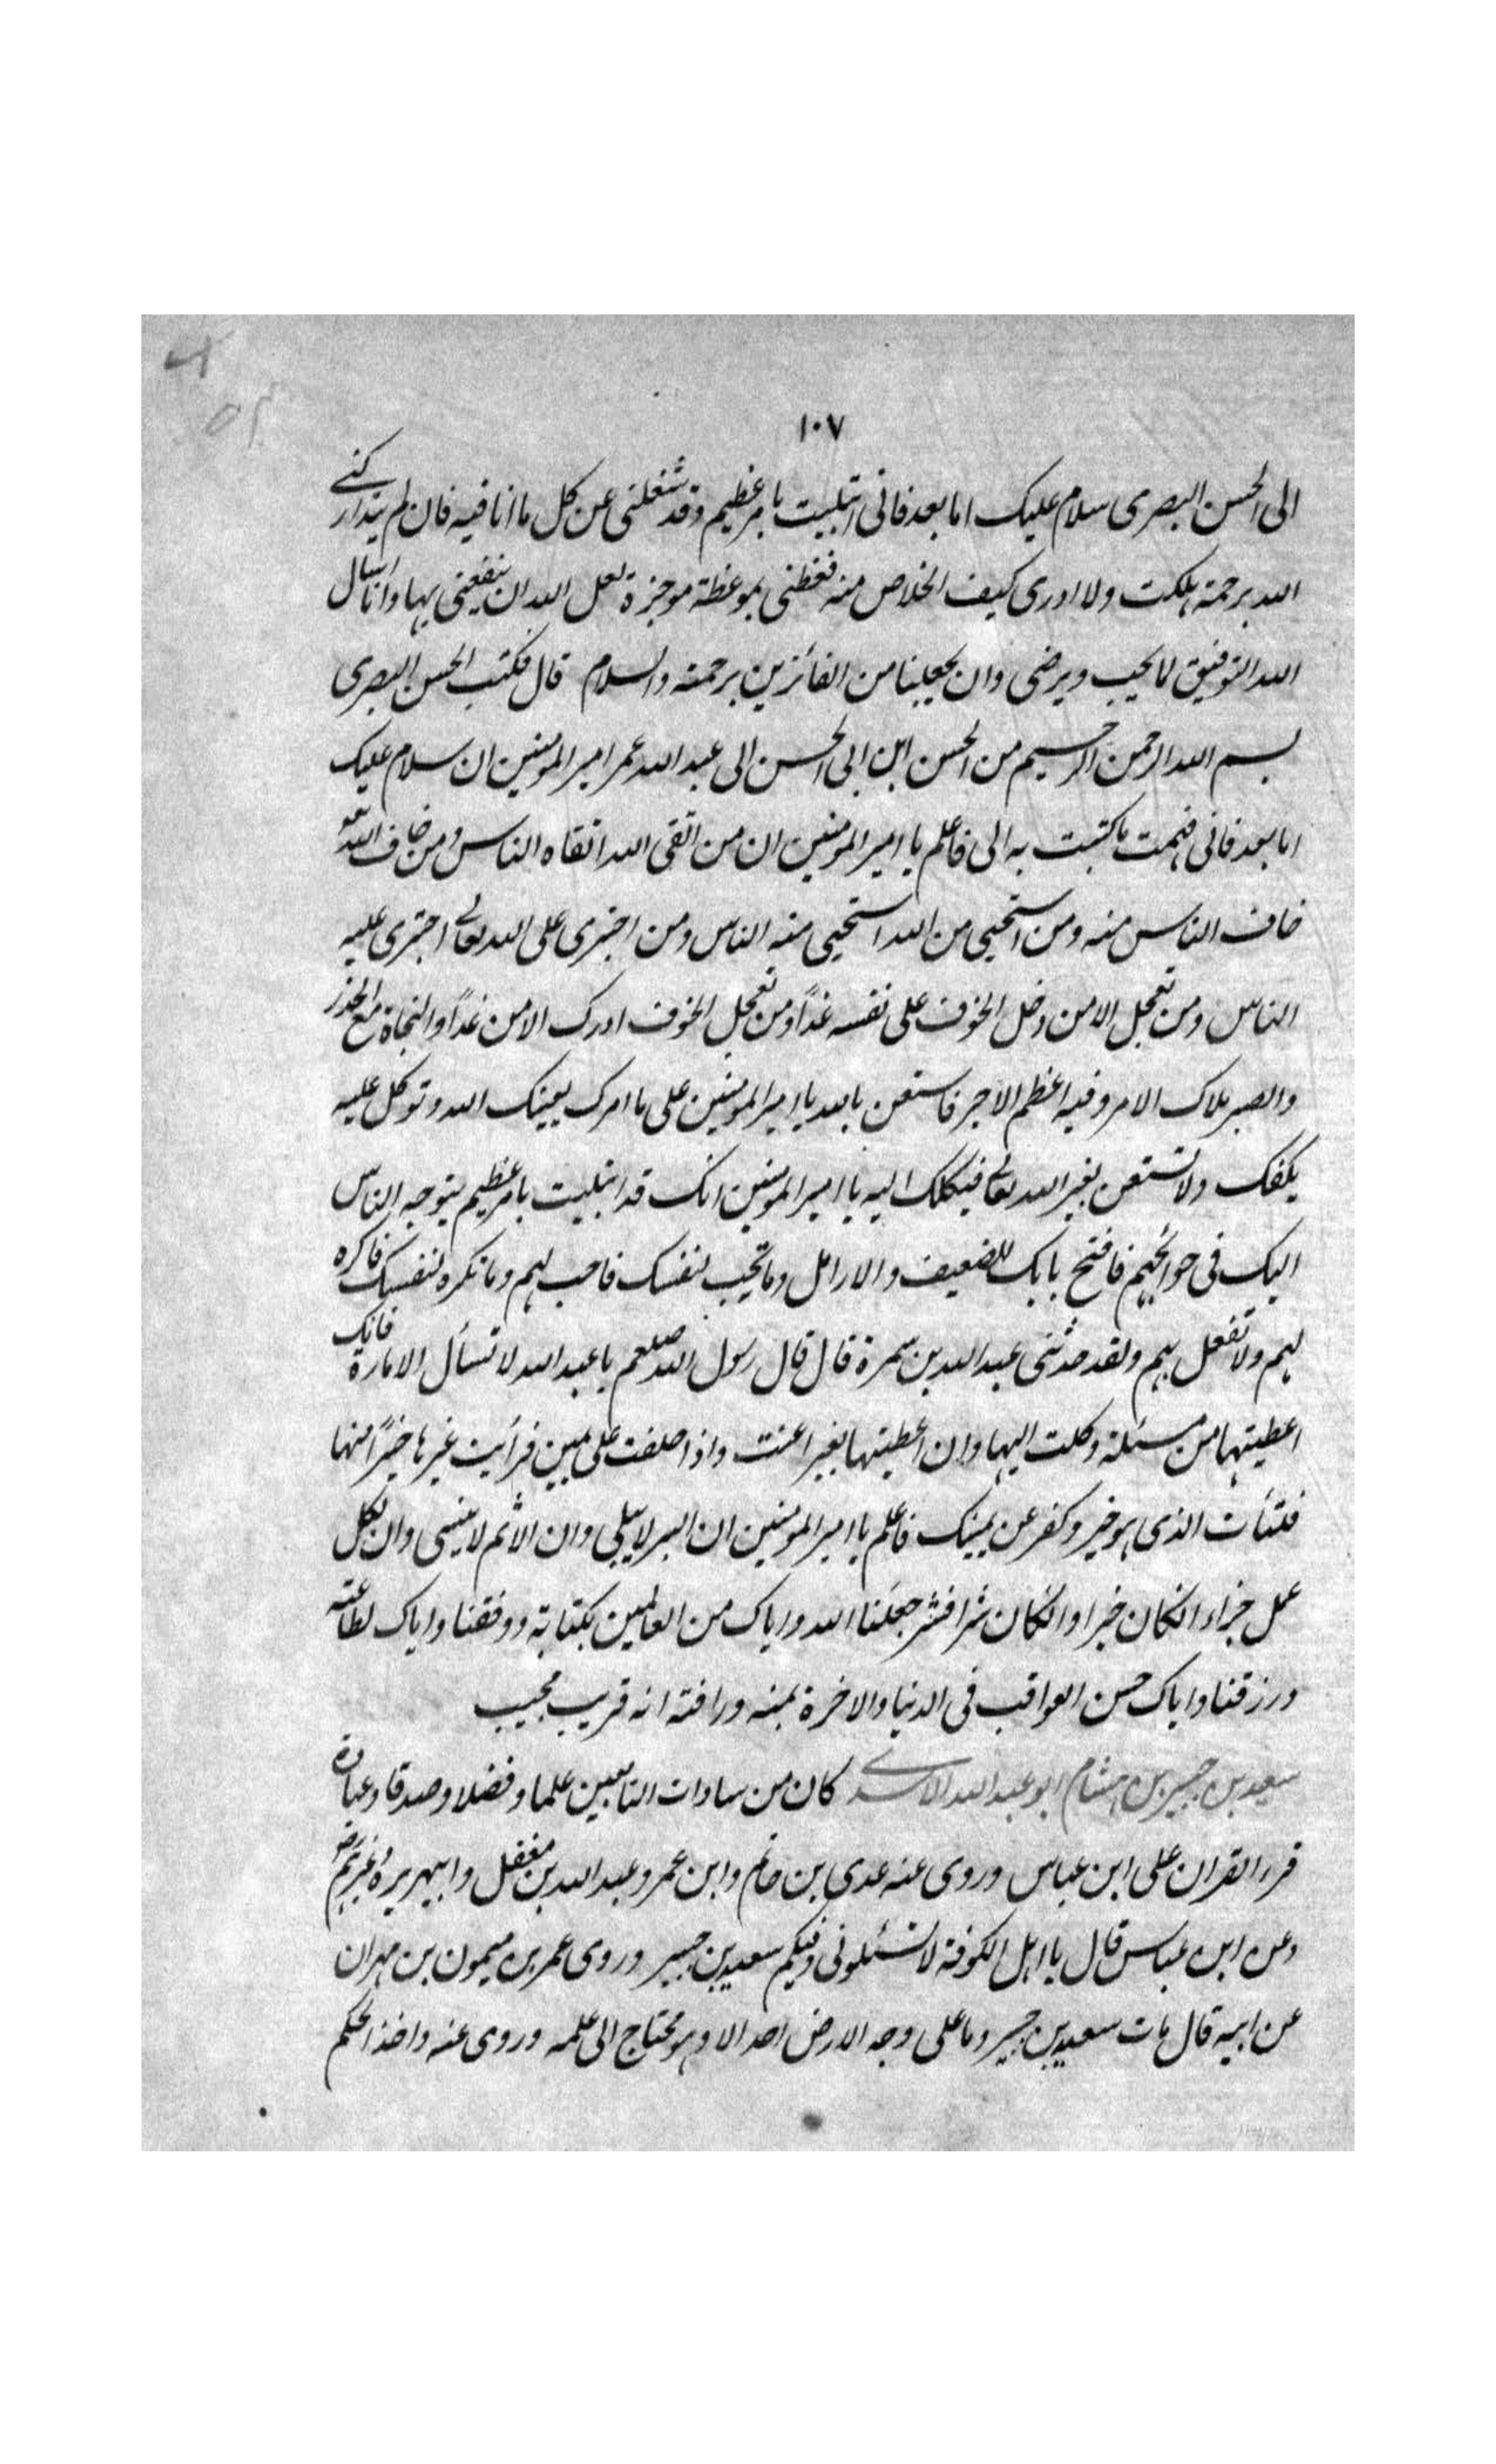 ١٠٧
الى الحسن البصرى سلام عليك اما بعد فانى ابتليت بامر عظيم وقد شغلنى عن كل ما انا فيه فان لم يتداركنے
الله برحمته هلكت ولا ادرى كيف الخلاص منه فعظنى بموعظة موجزة لعل الله ان ينفعنى بها وانا اسال
الله التوفيق لما يحب ويرضى وان يجعلنا من الفائزين برحمته والسلام قال فكتب الحسن البصرى
بسم الله الرحمن الرحيم من الحسن ابن ابى الحسن الى عبد الله عمر امير المومنين ان سلام عليك
اما بعد فانى فهمت ما كتبت به الى فاعلم يا امير المومنين ان من اتقى الله اتقاه الناس ومن خاف الله
خاف الناس منه ومن استحيى من الله استحيى منه الناس ومن اجترى على الله تعالے اجترى عليه
الناس ومن تعجل الامن دخل الخوف على نفسه غدًا ومن تعجل الخوف ادرك الامن غدًا والنجاة مع الحذر
والصبر ملاك الامر وفيه اعظم الاجر فاستعن بالله يا امير المومنين على ما امرك يعينك الله وتوكل عليه
يكفك ولا تستعن بغير الله تعالے فيكلك اليه يا امير المومنين انك قد ابتليت بامر عظيم يتوجه الناس
اليك فى حوائجهم فافتح بابك للضعيف والارامل وما تحب لنفسك فاحب لهم وما تكره لنفسك فاكره
لهم ولا تفعل بهم ولقد حدثنى عبد الله بن سمرة قال قال رسول الله صلعم يا عبد الله لا تسأل الامارة فانك
اعطيتها من مسئلة وكلت اليها وان اعطيتها بغير اعنت واذا حلفت على يمين فرأيت غيرها خيرًا منها
فتئات الذى هو خير وكفر عن يمينك فاعلم يا امير المومنين ان البر لا يبلى وان الاثم لا ينسى وان لكل
عمل جزاء انكان خيرا وانكان شرا فشر جعلنا الله واياك من العالمين بكتابة ووفقنا واياك لطاعته
ورزقنا واياك حسن العواقب فى الدنيا والاخرة بمنه ورافته انه قريب مجيب
سعيد بن جبير بن هشام ابو عبد الله الاسدے كان من سادات التابعين علما وفضلا وصدقا وعبادة
قرء القران على ابن عباس وروى عنه عدى بن حاتم وابن عمر وعبد الله بن مغفل وابيهريرة وغيرهم
وعن ابن عباس قال يا اهل الكوفة لا تسئلونى وفيكم سعيد بن جبير وروى عمر بن ميمون بن مهران
عن ابيه قال مات سعيد بن جبير وما على وجه الارض احد الا وهو محتاج الى علمه وروى عنه واخذ الحكم